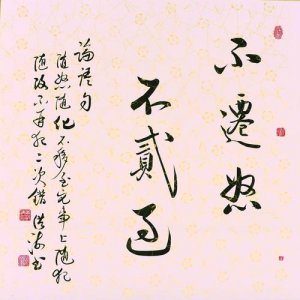 不遷怒
不貳過
論語句
随怒随化不移至完事上随犯
随改不再犯二次錯